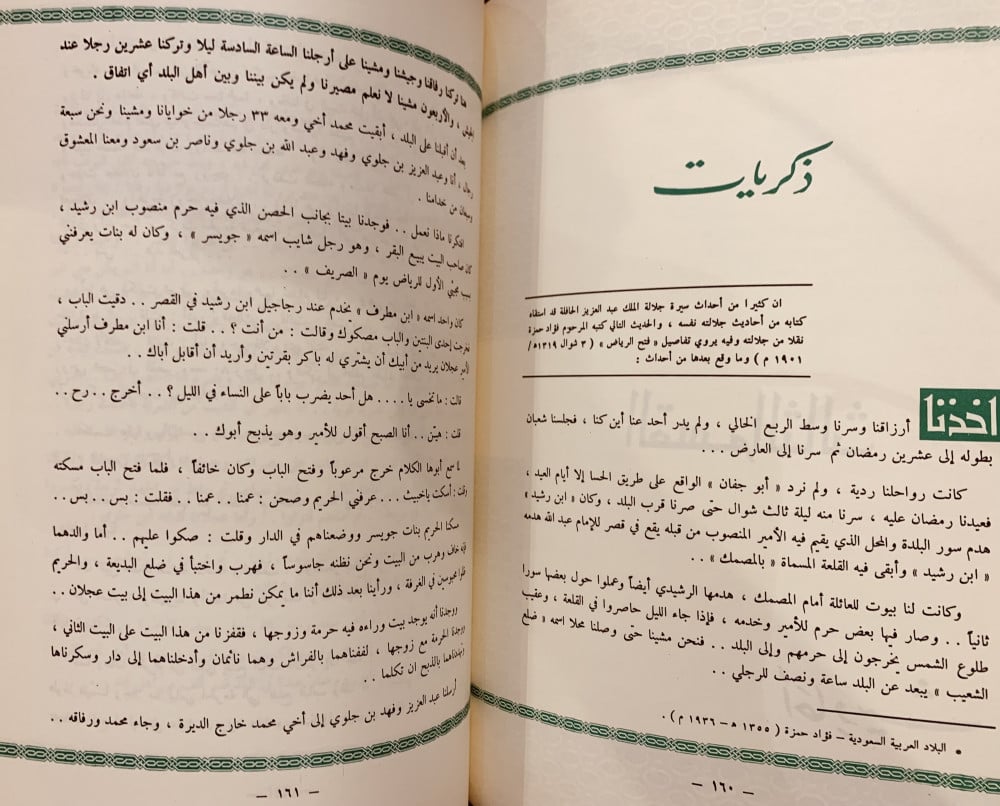 ذكريات
ان كثيرا من أحداث سيرة جلالة الملك عبد العزيز الحافلة قد استقاه
كتابه من أحاديث جلالته نفسه ، والحديث التالي كتبه المرحوم فؤاد حمزة
نقلا من جلالته وفيه يروي تفاصيل « فتح الرياض » ( ٣ شوال ١٣١٩ه/
١٩٠١ م ) وما وقع بعدها من أحداث :
اخذنا أرزاقنا وسرنا وسط الربع الخالي ، ولم يدر أحد عنا أين كنا ، فجلسنا شعبان
بطوله إلى عشرين رمضان ثم سرنا إلى العارض ...
كانت رواحلنا ردية ، ولم نرد « أبو جفان » الواقع على طريق الحسا إلا أيام العيد ،
فعيدنا رمضان عليه ، سرنا منه ليلة ثالث شوال حتى صرنا قرب البلد ، وكان « ابن رشيد »
هدم سور البلدة والمحل الذي يقيم فيه الأمير المنصوب من قبله يقع في قصر للإمام عبد الله هدمه
« ابن رشيد » وأبقى فيه القلعة المسماة « بالمصمك » ..
وكانت لنا بيوت للعائلة أمام المصمك ، هدمها الرشيدي أيضاً وعملوا حول بعضها سورا
ثانياً .. وصار فيها بعض حرم للأمير وخدمه ، فإذا جاء الليل حاصروا في القلعة ، وعقيب
طلوع الشمس يخرجون إلى حرمهم وإلى البلد .. فنحن مشينا حتى وصلنا محلا اسمه « ضلع
الشعيب » يبعد عن البلد ساعة ونصف للرجلي ..
• البلاد العربية السعودية – فؤاد حمزة ( ١٣٥٥ ه – ١٩٣٦ م ) .
– ١٦٠ –
هنا تركنا رفاقنا وجيشنا ومشينا على أرجلنا الساعة السادسة ليلا وتركنا عشرين رجلا عند
الجيش ، والأربعون مشينا لا نعلم مصيرنا ولم يكن بيننا وبين أهل البلد أي اتفاق .
بعد أن أقبلنا على البلد ، أبقيت محمد أخي ومعه ٣٣ رجلا من خوايانا ومشينا ونحن سبعة
رجال ، أنا وعبد العزيز بن جلوي وفهد وعبد الله بن جلوي وناصر بن سعود ومعنا المعشوق
وسبعان من خدامنا .
افتكرنا ماذا نعمل .. فوجدنا بيتا بجانب الحصن الذي فيه حرم منصوب ابن رشيد ،
كان صاحب البيت يبيع البقر ، وهو رجل شايب اسمه « جويسر » ، وكان له بنات يعرفنني
بسبب مجيئي الأول للرياض يوم « الصريف » ..
كان واحد اسمه « ابن مطرف » يخدم عند رجاجيل ابن رشيد في القصر .. دقيت الباب ،
فخرجت إحدى البنتين والباب مصكوك وقالت : من أنت ؟ .. قلت : أنا ابن مطرف أرسلني
الأمير عجلان يريد من أبيك أن يشتري له باكر بقرتين وأريد أن أقابل أباك ..
قالت : ما تخسى يا .... هل أحد يضرب باباً على النساء في الليل ؟ .. أخرج .. رح ..
قلت : هيّن .. أنا الصبح أقول للأمير وهو يذبح أبوك ..
لما سمع أبوها الكلام خرج مرعوباً وفتح الباب وكان خائفاً ، فلما فتح الباب مسكته
وقلت : أسكت ياخبيث ... عرفني الحريم وصحن : عمنا .. عمنا .. فقلت : بس .. بس ..
سكنا الحريم بنات جويسر ووضعناهم في الدار وقلت : صكوا عليهم .. أما والدهما
فإنه خاف وهرب من البيت ونحن نظنه جاسوساً ، فهرب واختبأ في ضلع البديعة ، والحريم
ظلوا محبوسين في الغرفة ، ورأينا بعد ذلك أننا ما يمكن نطمر من هذا البيت إلى بيت عجلان ..
ووجدنا أنه يوجد بيت وراءه فيه حرمة وزوجها ، فقفزنا من هذا البيت على البيت الثاني ،
ووجدنا الحرمة مع زوجها ، لففناهما بالفراش وهما نائمان وأدخلناهما إلى دار وسكرناها
وهددناهما بالذبح ان تكلما ..
أرسلنا عبد العزيز وفهد بن جلوي إلى أخي محمد خارج الديرة ، وجاء محمد ورفاقه ..
– ١٦١ –